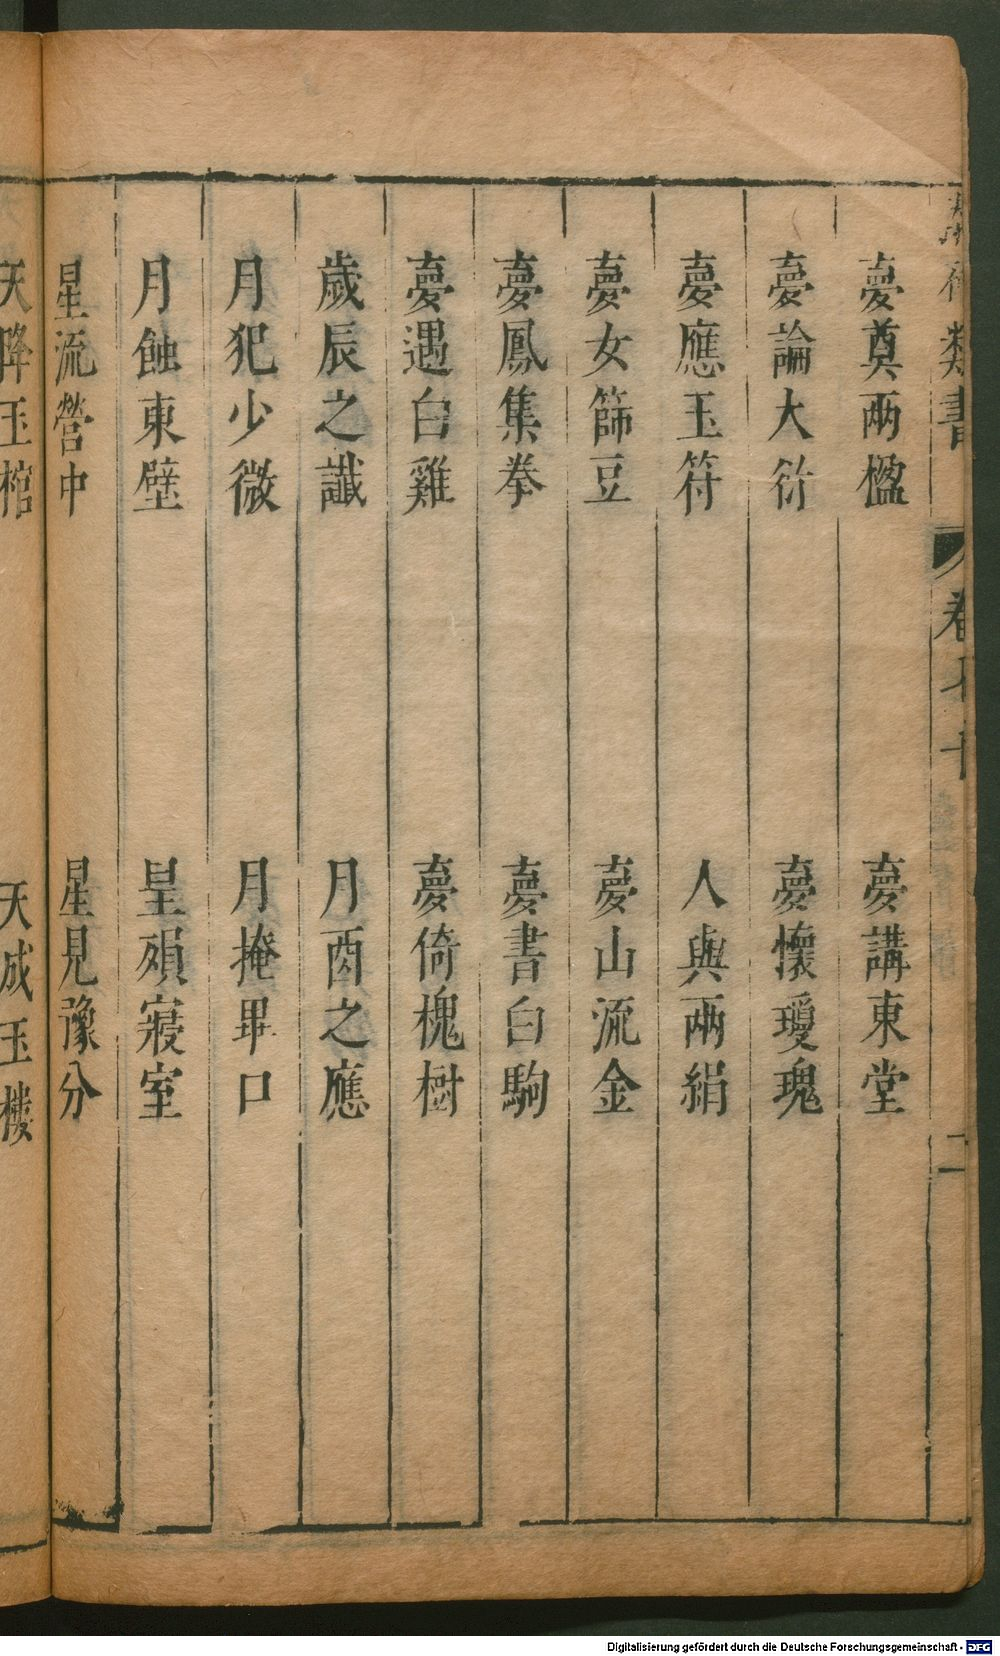 類書
卷
二
夢奠兩楹　夢講東堂
夢論大衍　夢懷瓊瑰
夢應玉符　人與兩絹
夢女篩豆　夢山流金
夢鳳集拳　夢書白駒
夢遇白雞　夢倚槐樹
歲辰之讖　月酉之應
月犯少微　月掩畢口
月蝕東壁　星殞寢室
星流營中　星見豫分
天降玉棺　天成玉樓
Digitalisierung gefördert durch die Deutsche Forschungsgemeinschaft - DFG